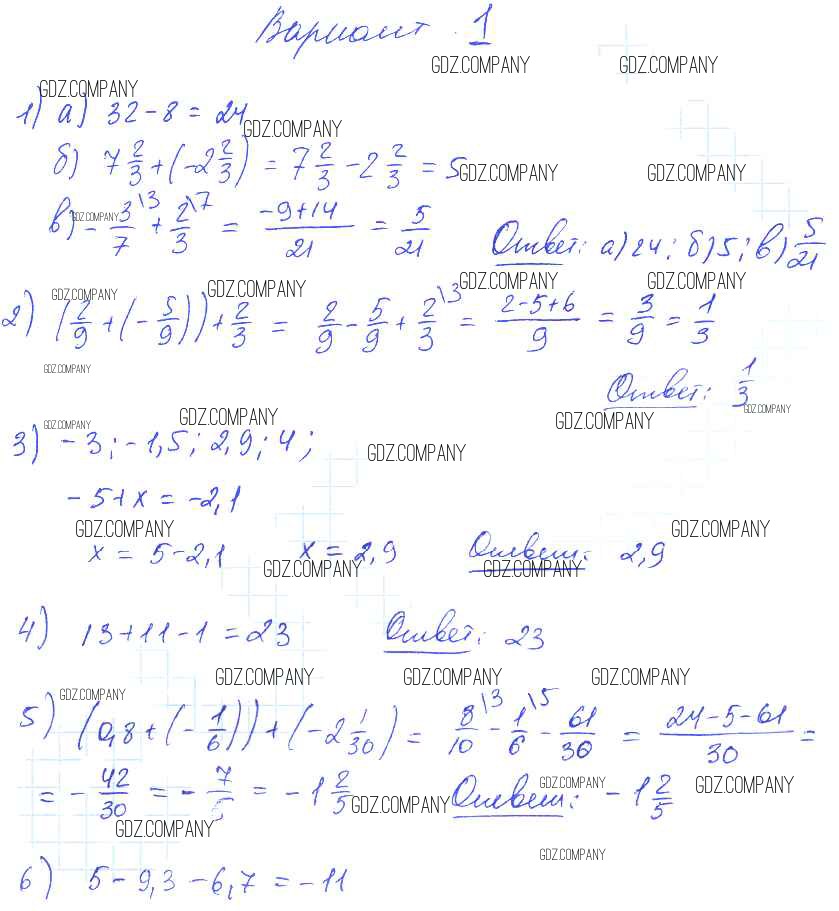 Вариант 1
GDZ.COMPANY GDZ.COMPANY
GDZ.COMPANY
1) а) 32 - 8 = 24
GDZ.COMPANY
б) 7 2/3 + (-2 2/3) = 7 2/3 - 2 2/3 = 5
GDZ.COMPANY GDZ.COMPANY
GDZ.COMPANY
в) - 3\3/7 + 2\7/3 = -9+14/21 = 5/21 Ответ: а) 24; б) 5; в) 5/21
GDZ.COMPANY GDZ.COMPANY GDZ.COMPANY GDZ.COMPANY
2) (2/9 + (- 5/9)) + 2/3 = 2/9 - 5/9 + 2\3/3 = 2-5+6/9 = 3/9 = 1/3
GDZ.COMPANY
Ответ: 1/3
GDZ.COMPANY GDZ.COMPANY GDZ.COMPANY GDZ.COMPANY
3) -3; -1,5; 2,9; 4;
GDZ.COMPANY
-5+x = -2,1
GDZ.COMPANY GDZ.COMPANY
x = 5-2,1 x = 2,9 Ответ: 2,9
GDZ.COMPANY GDZ.COMPANY
4) 13+11-1 = 23 Ответ: 23
GDZ.COMPANY GDZ.COMPANY GDZ.COMPANY
GDZ.COMPANY
5) (0,8 + (- 1/6)) + (-2 1/30) = 8\3/10 - 1\5/6 - 61/30 = 24-5-61/30 =
= - 42/30 = - 7/5 = -1 2/5 Ответ: -1 2/5
GDZ.COMPANY GDZ.COMPANY GDZ.COMPANY
GDZ.COMPANY
GDZ.COMPANY
6) 5 - 9,3 - 6,7 = -11